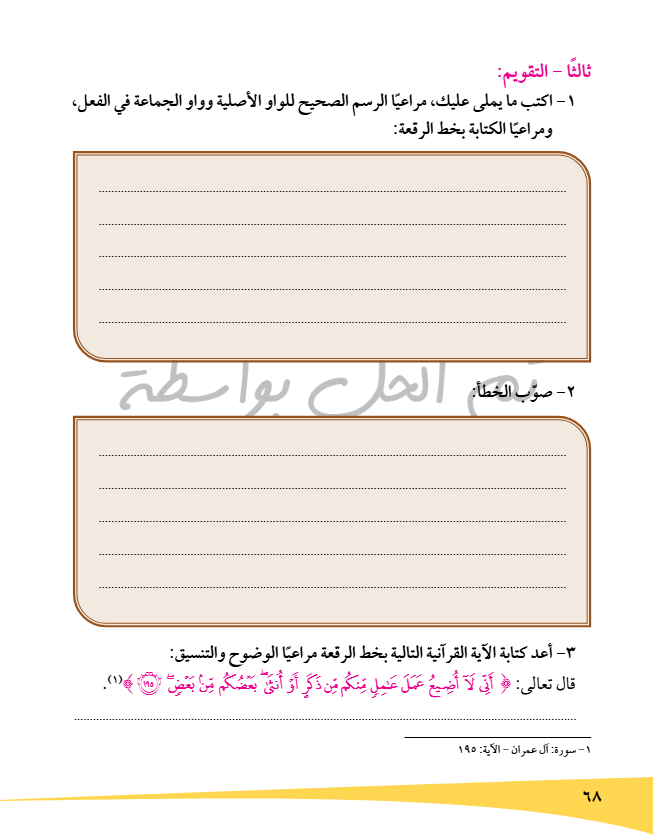 ثالثًا - التقويم:
١- اكتب ما يملى عليك، مراعيًا الرسم الصحيح للواو الأصلية وواو الجماعة في الفعل،
ومراعيًا الكتابة بخط الرقعة:
تم الحل بواسطة
٢- صوّب الخطأ:
٣- أعد كتابة الآية القرآنية التالية بخط الرقعة مراعيًا الوضوح والتنسيق:
قال تعالى: ﴿ أَنِّي لَآ أُضِيعُ عَمَلَ عَٰمِلٖ مِّنكُم مِّن ذَكَرٍ أَوۡ أُنثَىٰۖ بَعۡضُكُم مِّنۢ بَعۡضٖۖ ١٩٥ ﴾(١).
١- سورة: آل عمران - الآية: ١٩٥
٦٨